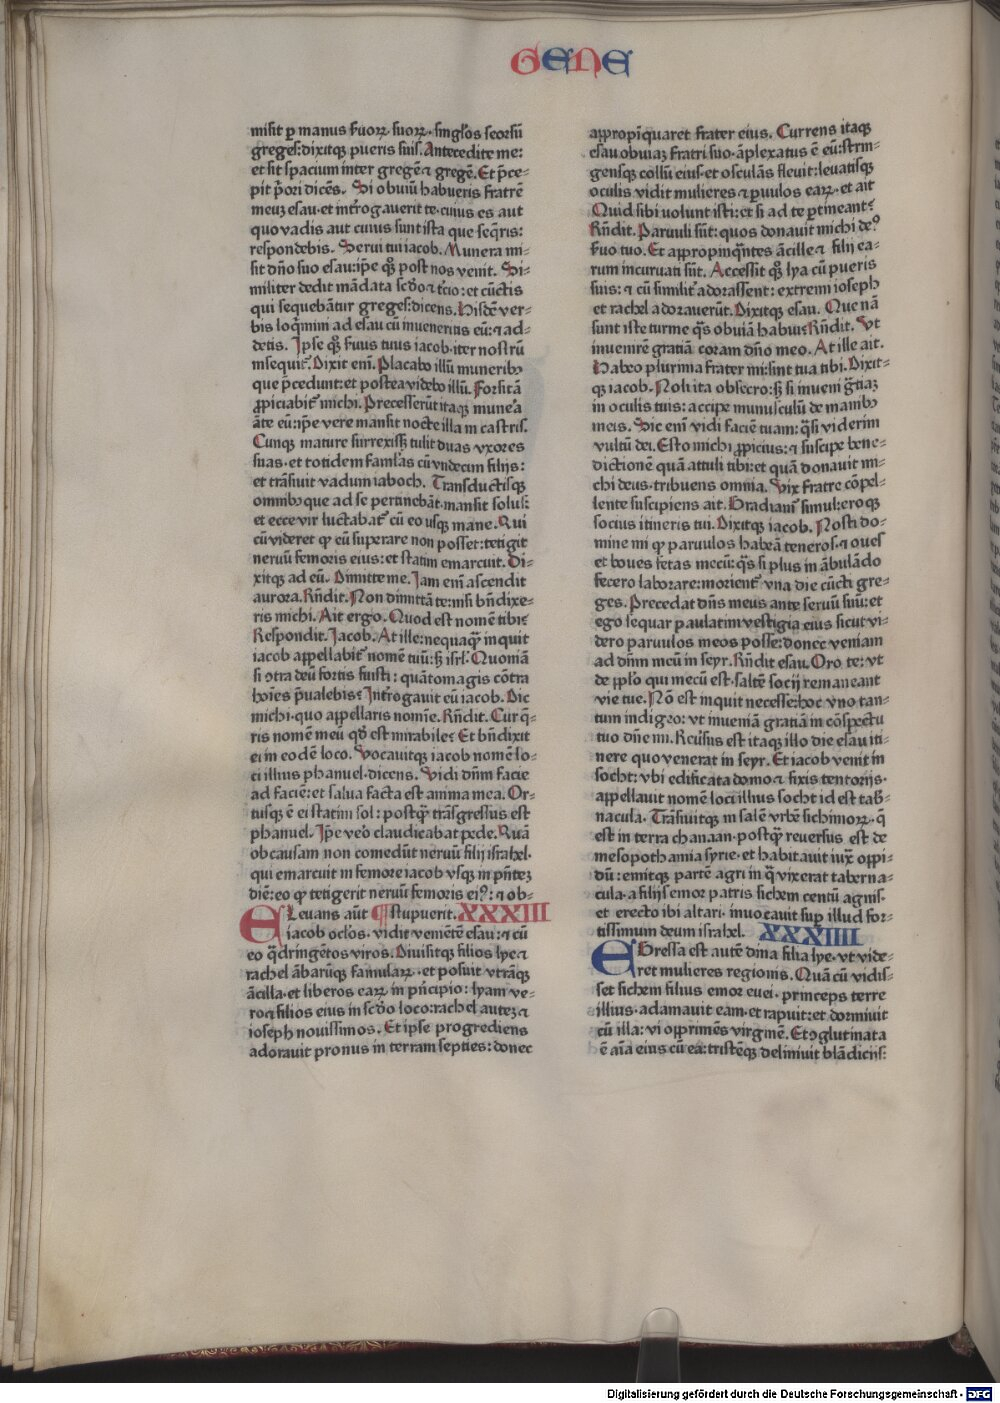 GENE
misit p̱ manus s̄uoꝝ suoꝝ· singl̓os seorsū
greges: dixitqꝫ pueris suis. Antecedite me:
et sit spacium inter gregē ⁊ gregē. Et p̄ce⸗
pit p̄ori dicēs. Si obuiū habueris fratrē
meuꝫ esau· et int̓rogauerit te· cuius es aut
quo vadis aut cuius sunt ista que seq̄ris:
respondebis. Serui tui iacob. Munera mi⸗
sit dn̄o suo esau: ip̄e qꝫ post nos venit. Si⸗
militer dedit mādata scd̓o ⁊ t̓cio: et cūctis
qui sequebātur greges: dicens. Hisdē ver⸗
bis loq̄mini ad esau cū inueneritis eū: ⁊ ad⸗
detis. Ipse qꝫ s̓uus tuus iacob· iter nostrū
insequit̓. Dixit em̄. Placabo illū munerib9
que p̄cedunt: et postea videbo illū. Forsitā
ꝓpiciabit̓ michi. Precesserūt itaqꝫ mun̓ea
āte eū: ip̄e vere mansit nocte illa in castris.
Cunqꝫ mature surrexissꝫ tulit duas vxores
suas· et totidem faml̓as cū vndecim filijs:
et trāsiuit vadum iaboch. Transductisqꝫ
omnib9 que ad se pertinebāt· mansit solus:
et ecce vir luctabat̓ cū eo usqꝫ mane. Qui
cū videret ꝙ eū superare non posset: tetigit
neruū femoris eius: et statim emarcuit. Di⸗
xitqꝫ ad eū. Dimitte me. Iam em̄ ascendit
aurora. Rn̄dit. Non dimittā te: nisi bn̄dixe⸗
ris michi. Ait ergo. Quod est nomē tibi?
Respondit. Iacob. At ille: nequaq̄ȝ inquit
iacob appellabit̓ nomē tuū: sꝫ isrl̓. Quoniā
si ↄtra deū fortis fuisti: quātomagis cōtra
hoīes p̄ualebis? Int̓rogauit eū iacob. Dic
michi· quo appellaris nomīe. Rn̄dit. Cur q̄⸗
ris nomē meū qd̓ est mirabile? Et bn̄dixit
ei in eodē loco. Vocauitqꝫ iacob nomē lo⸗
ci illius phanuel· dicens. Vidi dn̄m facie
ad faciē: et salua facta est anima mea. Or⸗
tusqꝫ ē ei statim sol: postqȝ trāsgressus est
phanuel. Ip̄e v̓eo claudicabat pede. Quā
ob causam non comedūt neruū filij israhel·
qui emarcuit in femore iacob vsqꝫ in pn̄teꝫ
diē: eo ꝙ tetigerit neruū femoris ei9: ⁊ ob⸗
Leuans aūt ¶ stupuerit. XXXIII
E iacob oclos· vidit veniētē esau: ⁊ cū
eo q̄dringētos viros. Diuisitqꝫ filios lye ⁊
rachel ābarūqꝫ famularꝝ· et posuit vtrāqꝫ
ācilla· et liberos earꝝ in pn̄cipio: lyam ve⸗
ro ⁊ filios eius in scd̓o loco: rachel auteꝫ ⁊
ioseph nouissimos. Et ipse progrediens
adorauit pronus in terram septies: donec
appropīquaret frater eius. Currens itaqꝫ
esau obuiaꝫ fratri suo· āplexatus ē eū: strin⸗
gensqꝫ collū eius· et osculās fleuit: leuatisqꝫ
oculis vidit mulieres ⁊ p̱uulos earꝝ· et ait
Quid sibi volunt isti: et si ad te p̱tineant?
Rn̄dit. Paruuli sūt: quos donauit michi de9
s̓uo tuo. Et appropinq̄ntes ācille ⁊ filij ea⸗
rum incuruati sūt. Accessit qꝫ lya cū pueris
suis: ⁊ cū similit̓ adorassent: extremi ioseph
et rachel adorauerūt. Dixitqꝫ esau. Que nā
sunt iste turme q̄s obuiā habui? Rn̄dit. Vt
inuenirē gratiā coram dn̄o meo. At ille ait.
Habeo plurima frater mi: sint tua tibi. Dixit⸗
qꝫ iacob. Noli ita obsecro: sꝫ si inueni gr̄tiaꝫ
in oculis tuis: accipe munusculū de manib9
meis. Sic em̄ vidi faciē tuam: q̄si viderim
vultū dei. Esto michi ꝓpicius: ⁊ suscipe bene⸗
dictionē quā attuli tibi: et quā donauit mi⸗
chi deus· tribuens omnia. Vix fratre cōpel⸗
lente suscipiens ait. Gradiam̓ simul: eroqꝫ
socius itineris tui. Dixitqꝫ iacob. Nosti do⸗
mine mi ꝙ paruulos habeā teneros· ⁊ oues
et boues fetas mecū: q̄s si plus in ābulādo
fecero laborare: morient̓ vna die cūcti gre⸗
ges. Precedat dn̄s meus ante seruū suū: et
ego sequar paulatim vestigia eius sicut vi⸗
dero paruulos meos posse: donec veniam
ad dn̄m meū in seyr. Rn̄dit esau. Oro te: vt
de pp̄lo qui mecū est· saltē socij remaneant
vie tue. Nō est inquit necesse: hoc vno tan⸗
tum indigeo: vt inueniā gratiā in cōspectu
tuo dn̄e mi. Reūsus est itaqꝫ illo die esau iti⸗
nere quo venerat in seyr. Et iacob venit in
socht: vbi edificata domo ⁊ fixis tentorijs·
appellauit nomē loci illius socht id est tab̓⸗
nacula. Trāsiuitqꝫ in salē vrbē sichimorꝝ· q̄
est in terra chanaan· postqȝ reuersus est de
mesopothamia syrie· et habitauit iux̄ oppi⸗
dū: emitqꝫ partē agri in q̄ vixerat taberna⸗
cula· a filijs emor patris sichem centū agnis·
et erecto ibi altari· inuocauit sup̱ illud for⸗
tissimum deum israhel. XXXIIII
EGressa est autē dina filia lye· vt vide⸗
ret mulieres regionis. Quā cū vidis⸗
set sichem filius emor euei· princeps terre
illius· adamauit eam· et rapuit: et dormiuit
cū illa: vi opprimēs virginē. Et ↄglutinata
ē aīa eius cū ea: tristēqꝫ deliniuit blādicijs:
Digitalisierung gefördert durch die Deutsche Forschungsgemeinschaft - DFG